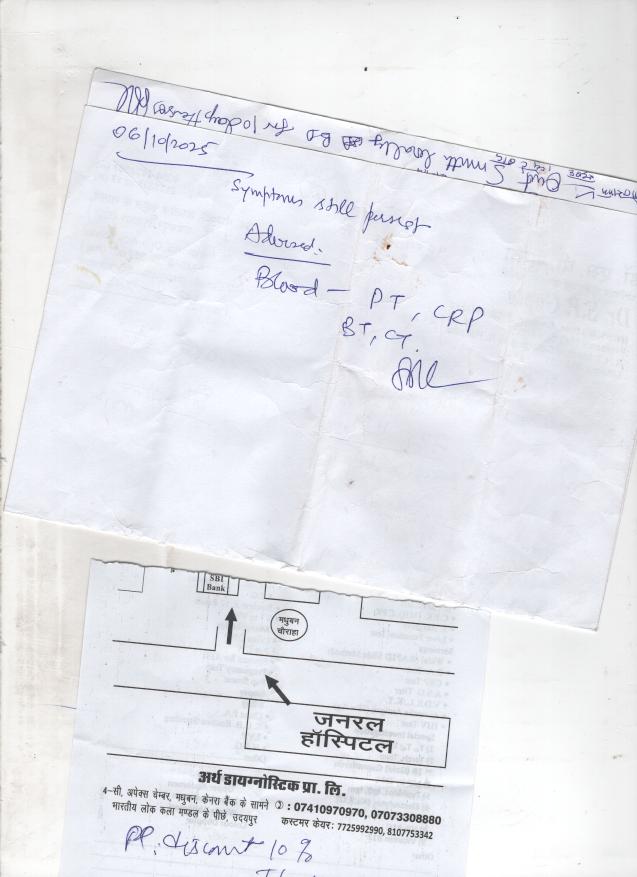 for 10 days
06/10/2025
Symptoms still persist
Advised:
Blood – PT, CRP
BT, CT.
SBI
Bank
मधुबन
चौराहा
जनरल
हॉस्पिटल
अर्थ डायग्नोस्टिक प्रा. लि.
4-सी, अपेक्स चेम्बर, मधुबन, केनरा बैंक के सामने : 07410970970, 07073308880
भारतीय लोक कला मण्डल के पीछे, उदयपुर कस्टमर केयर: 7725992990, 8107753342
PP. discount 10 %